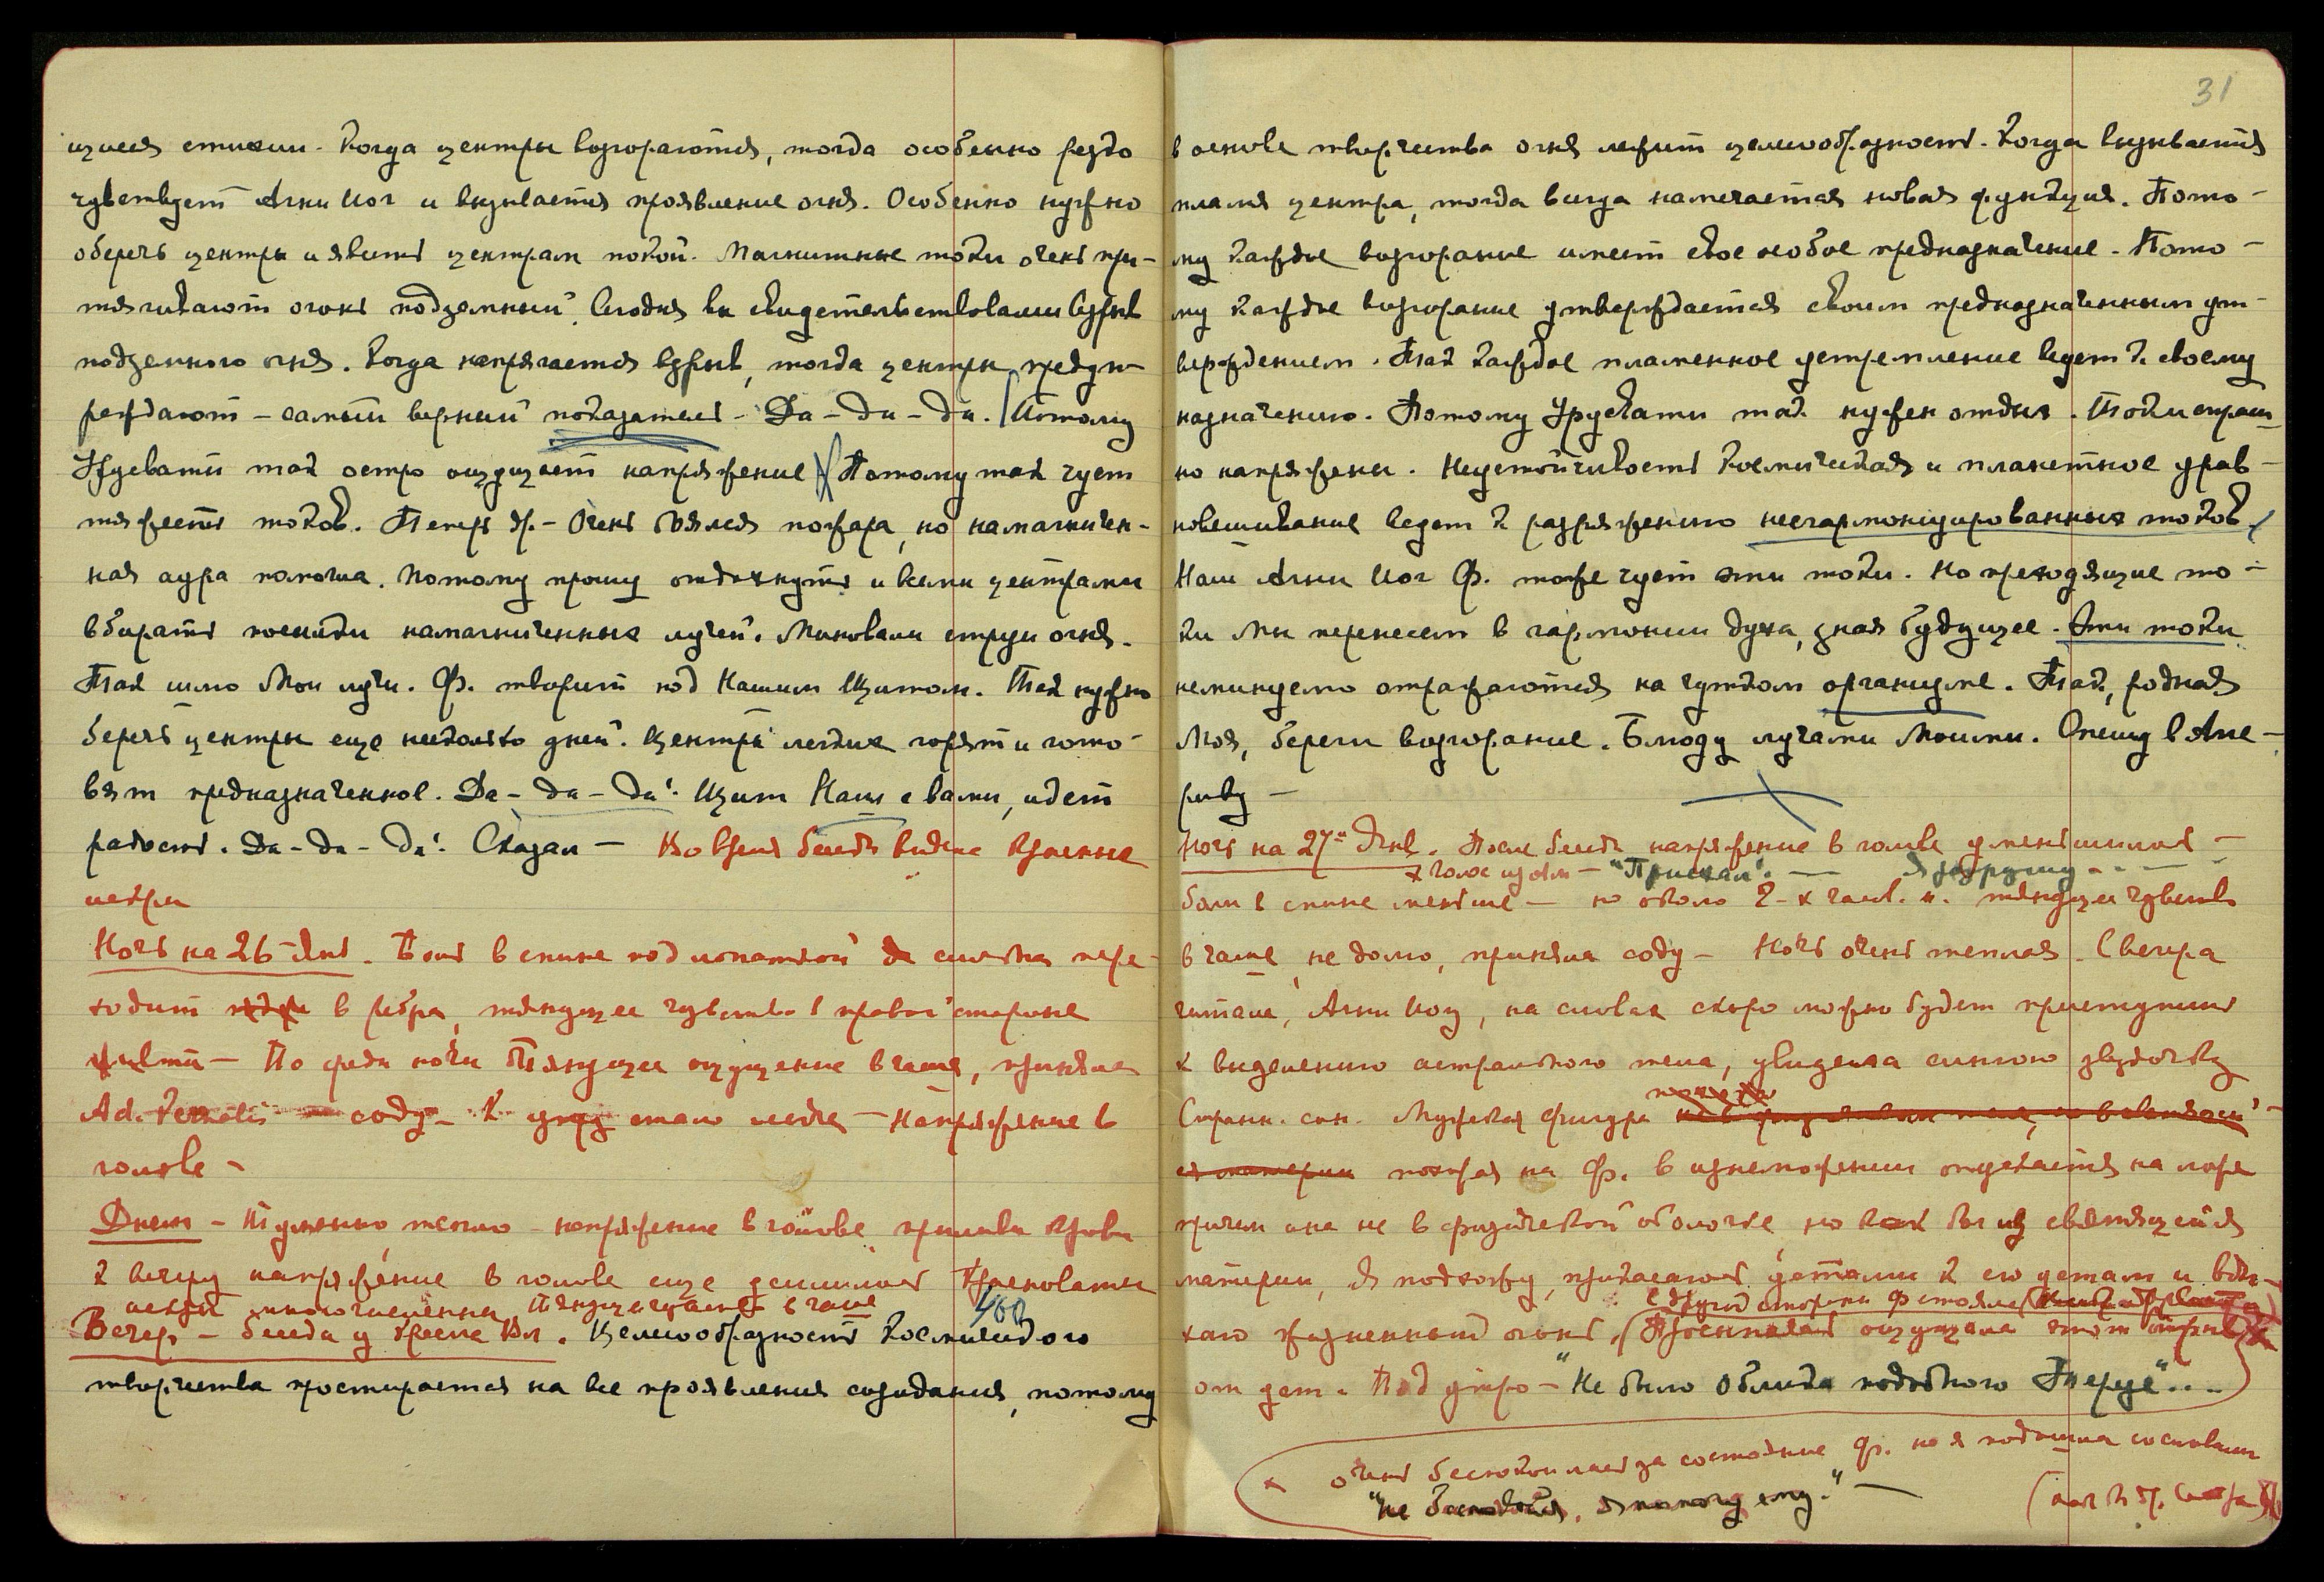 щиеся стихии. Когда центры возгораются, тогда особенно резко
чувствует Агни Йог и вызывается проявление огня. Особенно нужно
оберечь центры и явить центрам покой. Магнитные токи очень при-
тягивают огонь подземный. Сегодня вы свидетельствовали взрыв
подземного огня. Когда напрягается взрыв, тогда центры предуп-
реждают – самый верный показатель – Да – да – да. Потому
Урусвати так остро ощущает напряжение. Потому так чует
тяжесть токов. Теперь др. – Очень боялся пожара, но намагничен-
ная аура помогла. Потому прошу отдохнуть и всеми центрами
вбирать посылки намагниченных лучей. Миновали струи огня.
Так шлю Мои лучи. Ф. творит под Нашим Щитом. Так нужно
беречь центры еще несколько дней. Центры легких горят и гото-
вят предназначенное. Да – да – да! Щит Наш с вами, идет
радость. Да – да – да! Сказал – Во время беседы видела красные
искры
Ночь на 26 –Янв. Боль в спине под лопаткой слегка пере-
ходит в ребра, тянущее чувство в правой стороне
– По среди ночи тянущее ощущение в чаше, приняла
Ad. соду – К утру стало легче – Напряжение в
голове –
Днем – Туманно, тепло – напряжение в голове, приливы крови
К вечеру напряжение в голове еще усилилось Красноватые
искры многочисленны Тянущее чувство в чаше 460
Вечер – беседа у кресла Вл. Целесообразность Космического
творчества простирается на все проявления созидания, потому
31
в основе творчества огня лежит целесообразность. Когда вызывается
пламя центра, тогда всегда намечается новая функция. Пото-
му каждое возгорание имеет свое особое предназначение. Пото-
му каждое возгорание утверждается своим предназначенным ут-
верждением. Так каждое пламенное устремление ведет к своему
назначению. Потому Урусвати так нужен отдых. Токи страш-
но напряжены. Неустойчивость Космическая и планетное урав-
новешивание ведет к разряжению несгармонизированных токов.
Наш Агни Йог Ф. тоже чует эти токи. Но преходящие то-
ки Мы перенесем в гармонии духа, зная будущее. Эти токи
неминуемо отражаются на чутком организме. Так, родная
Моя, береги возгорание. Блюду лучами Моими. Спешу в Аме-
рику –
Ночь на 27ое Янв. После беседы напряжение в голове уменьшилось –
х голос – "Приехал". — Я
боли в спине меньше – но около 2-х час. н. тянущее чувство
в чаше, не долго, приняла соду – Ночь очень теплая. С вечера
читала, Агни Йогу, на словах скоро можно будет приступить
к выделению астрального тела, увидела синюю звездочку
Странн. сон. Мужская фигура
похожая на Ф. в изнеможении опускается на ложе
причем она не в физической оболочке но как бы из светящейся
материи, Я подхожу, прикасаюсь устами к его устам и вды-
с другой стороны Ф. стояла
хаю жизненный огонь. (Проснулась ощущала этот
от уст. Под утро – "Не было облика подобного Терцé"...
х очень беспокоилась за состояние Ф. но я подошла со словами
"не беспокойся, я помогу ему." —